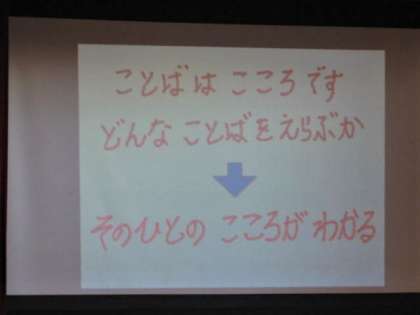 ことばは こころです
どんな ことばを えらぶか
そのひとの こころが わかる